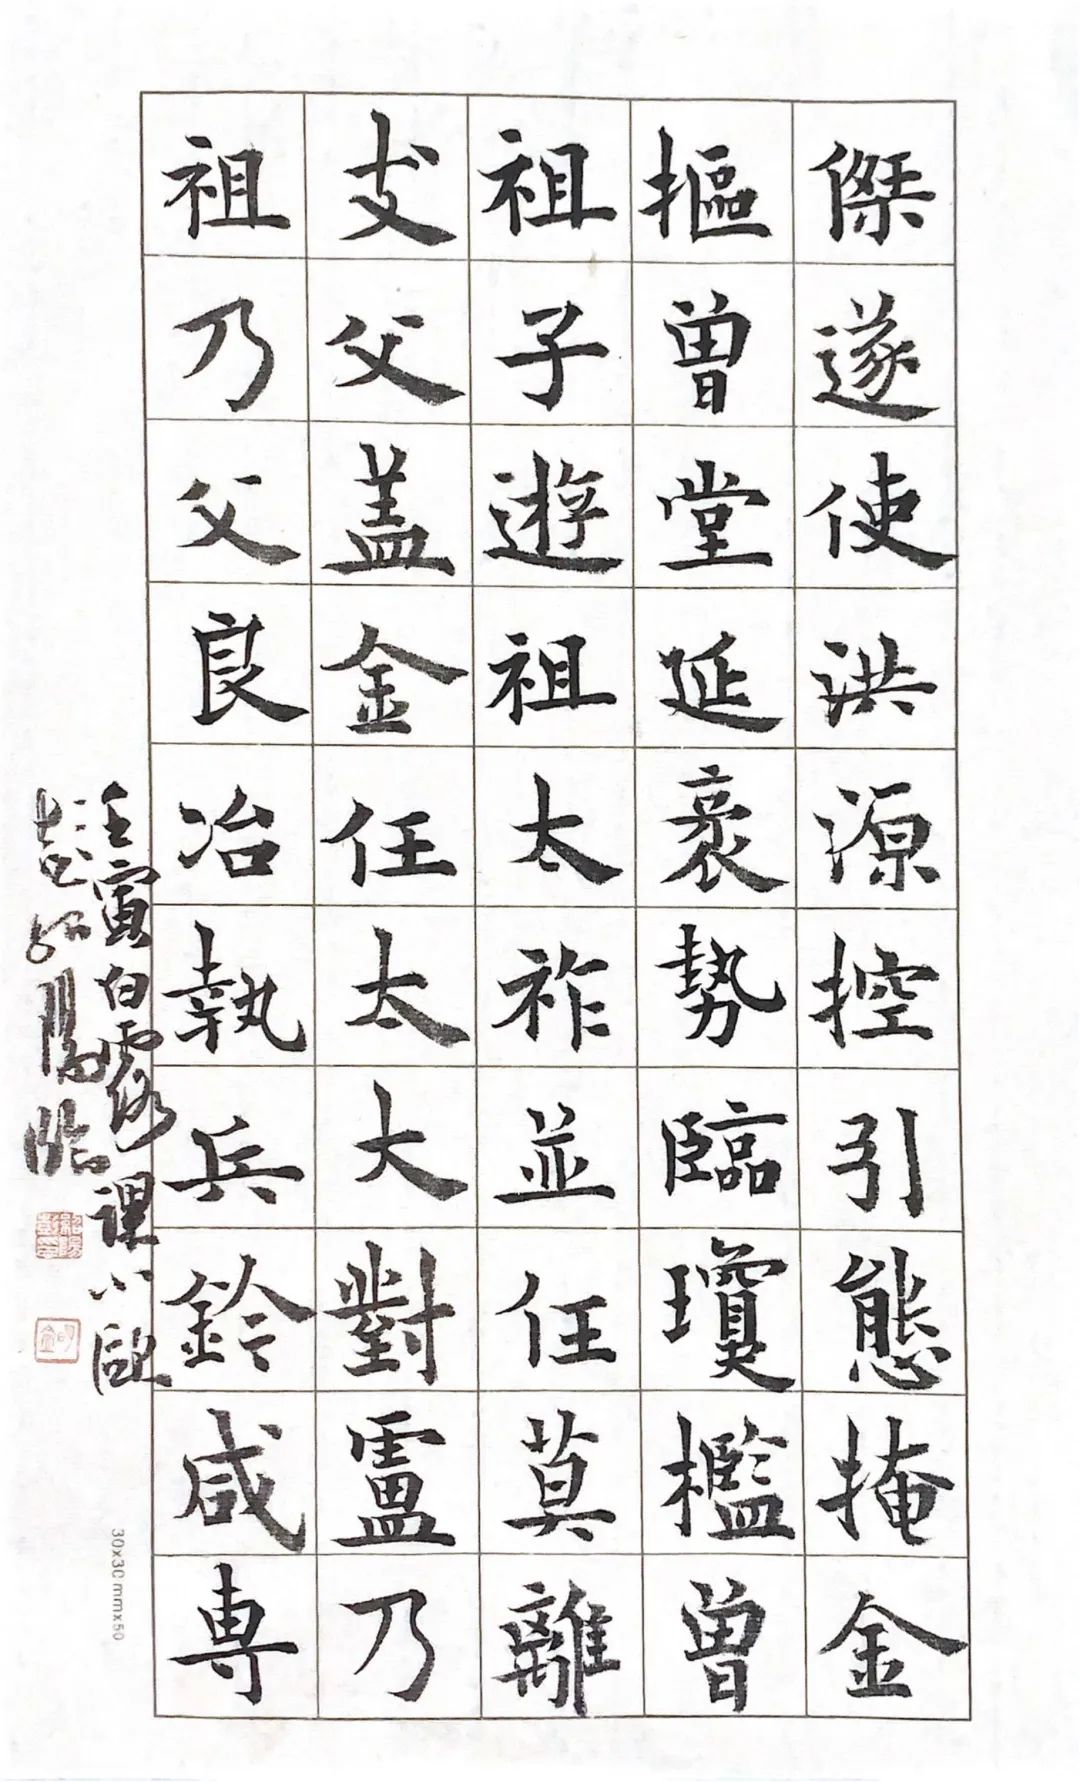 傑遂使洪源控引態掩金
摳曾堂延袤勢臨瓊檻曾
祖子遊祖太祚並任莫離
攴父盖金任太大對盧乃
祖乃父良冶執兵鈴咸専
壬寅白露課小歐
陽臨
30x30mmx50